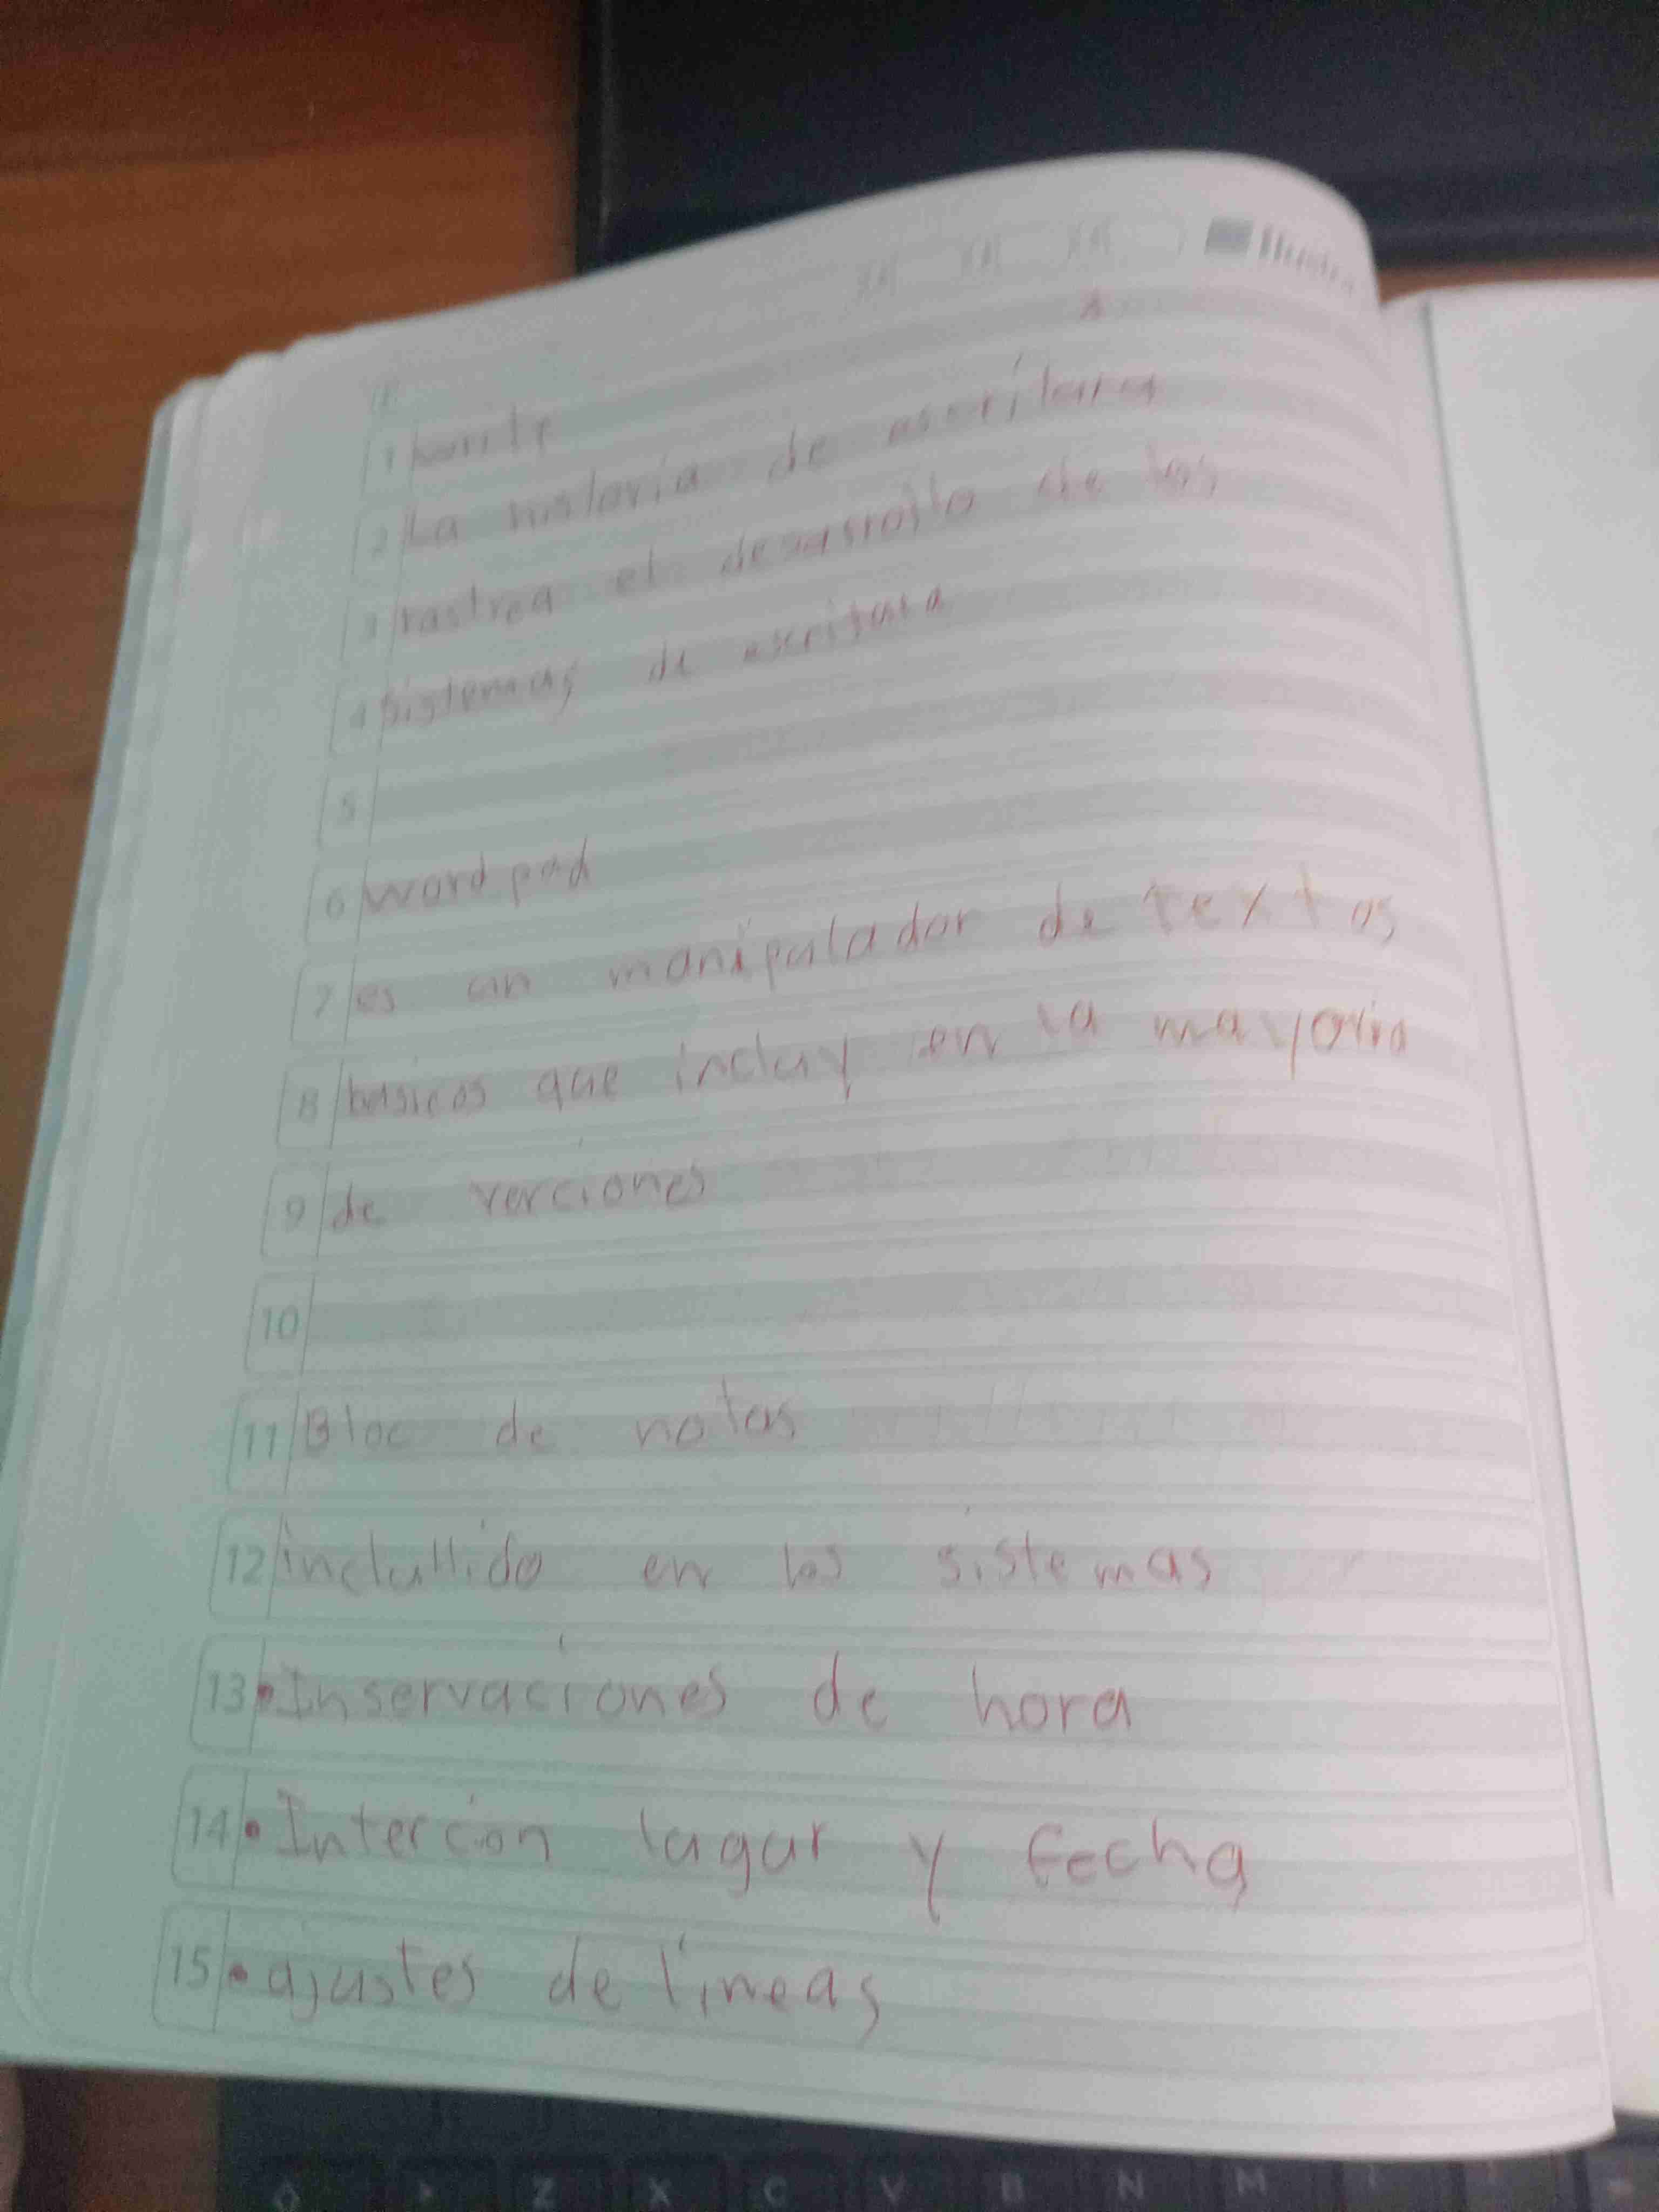 2 La historia de escritura
3 rastrea el desarrollo de los
4 sistemas de escritura
5
6 word pad
7 es un manipulador de textos
8 basicos que incluy en la mayoria
9 de verciones
10
11 Bloc de notas
12 inclullido en los sistemas
13 • Inservaciones de hora
14 • Intercion lugar y fecha
15 • ajustes de líneas